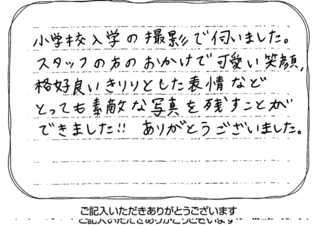 小学校入学の撮影で伺いました。
スタッフの方のおかげで可愛い笑顔、
格好良いきりりとした表情など
とっても素敵な写真を残すことが
できました!! ありがとうございました。
ご記入いただきありがとうございます
ご記入いただきありがとうございます